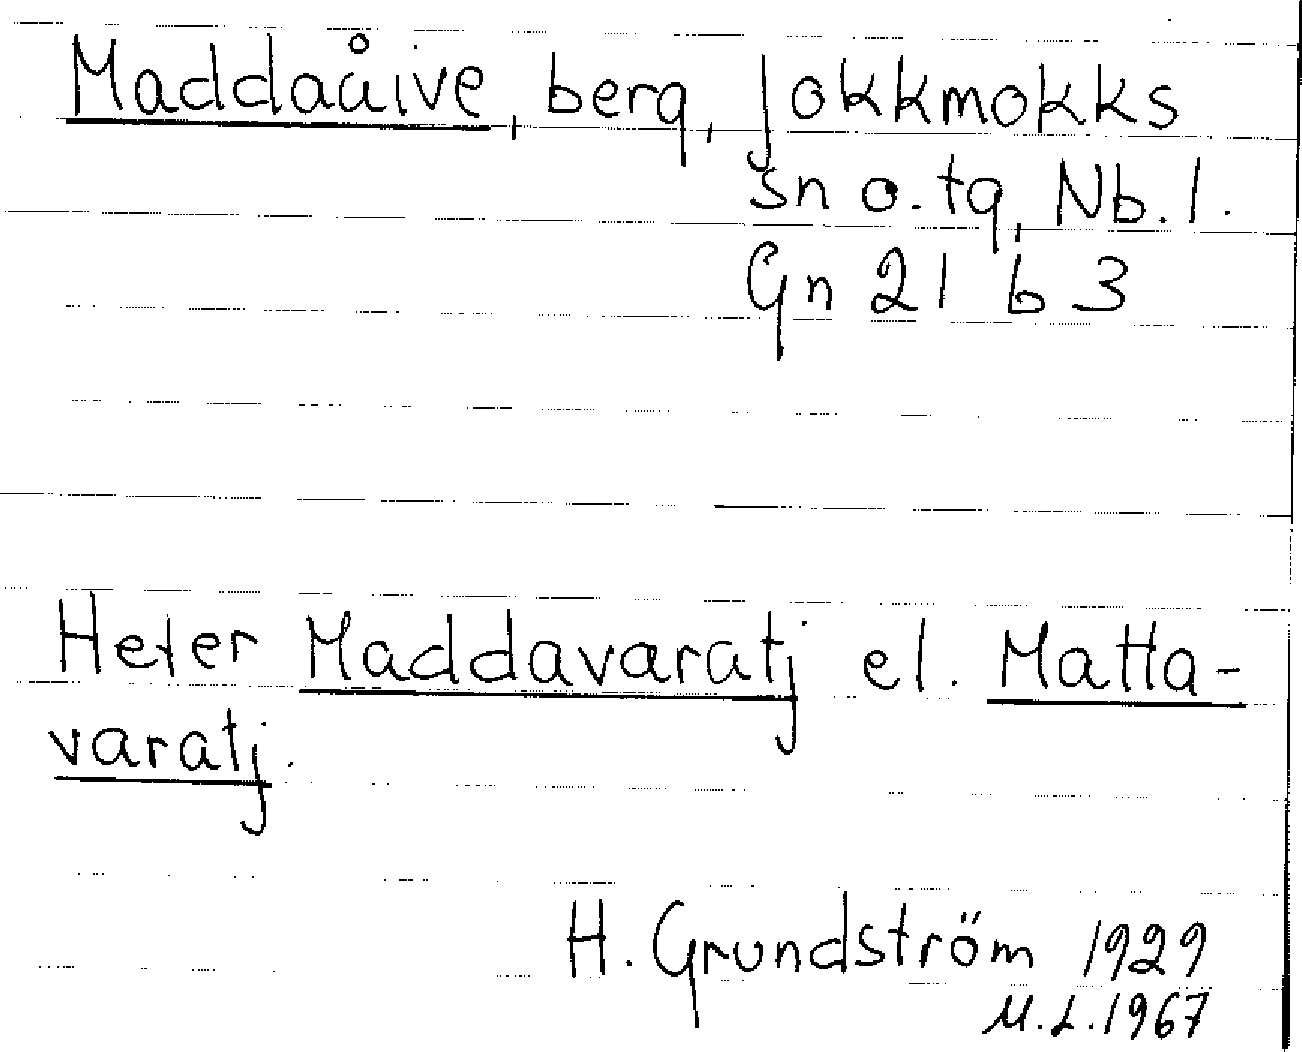 Maddaåive, berg, Jokkmokks
sn o. tg, Nb. l.
Gn 21 b 3
Heter Maddavaratj el. Matta-
varatj.
H. Grundström 1929
M.L. 1967